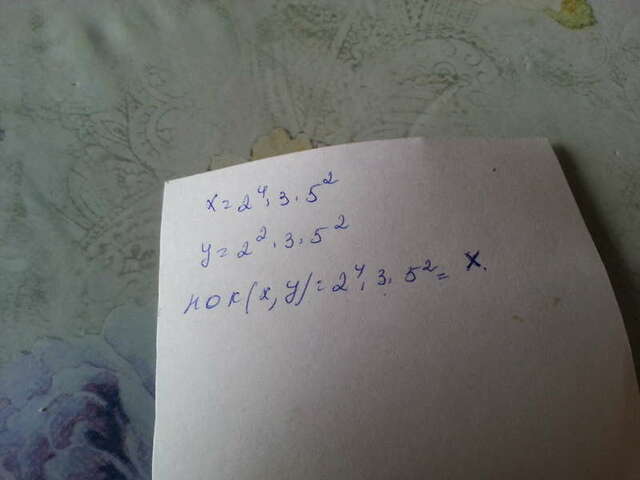 x = 2⁴ · 3 · 5²
y = 2² · 3 · 5²
нок (x, y) = 2⁴ · 3 · 5² = x.